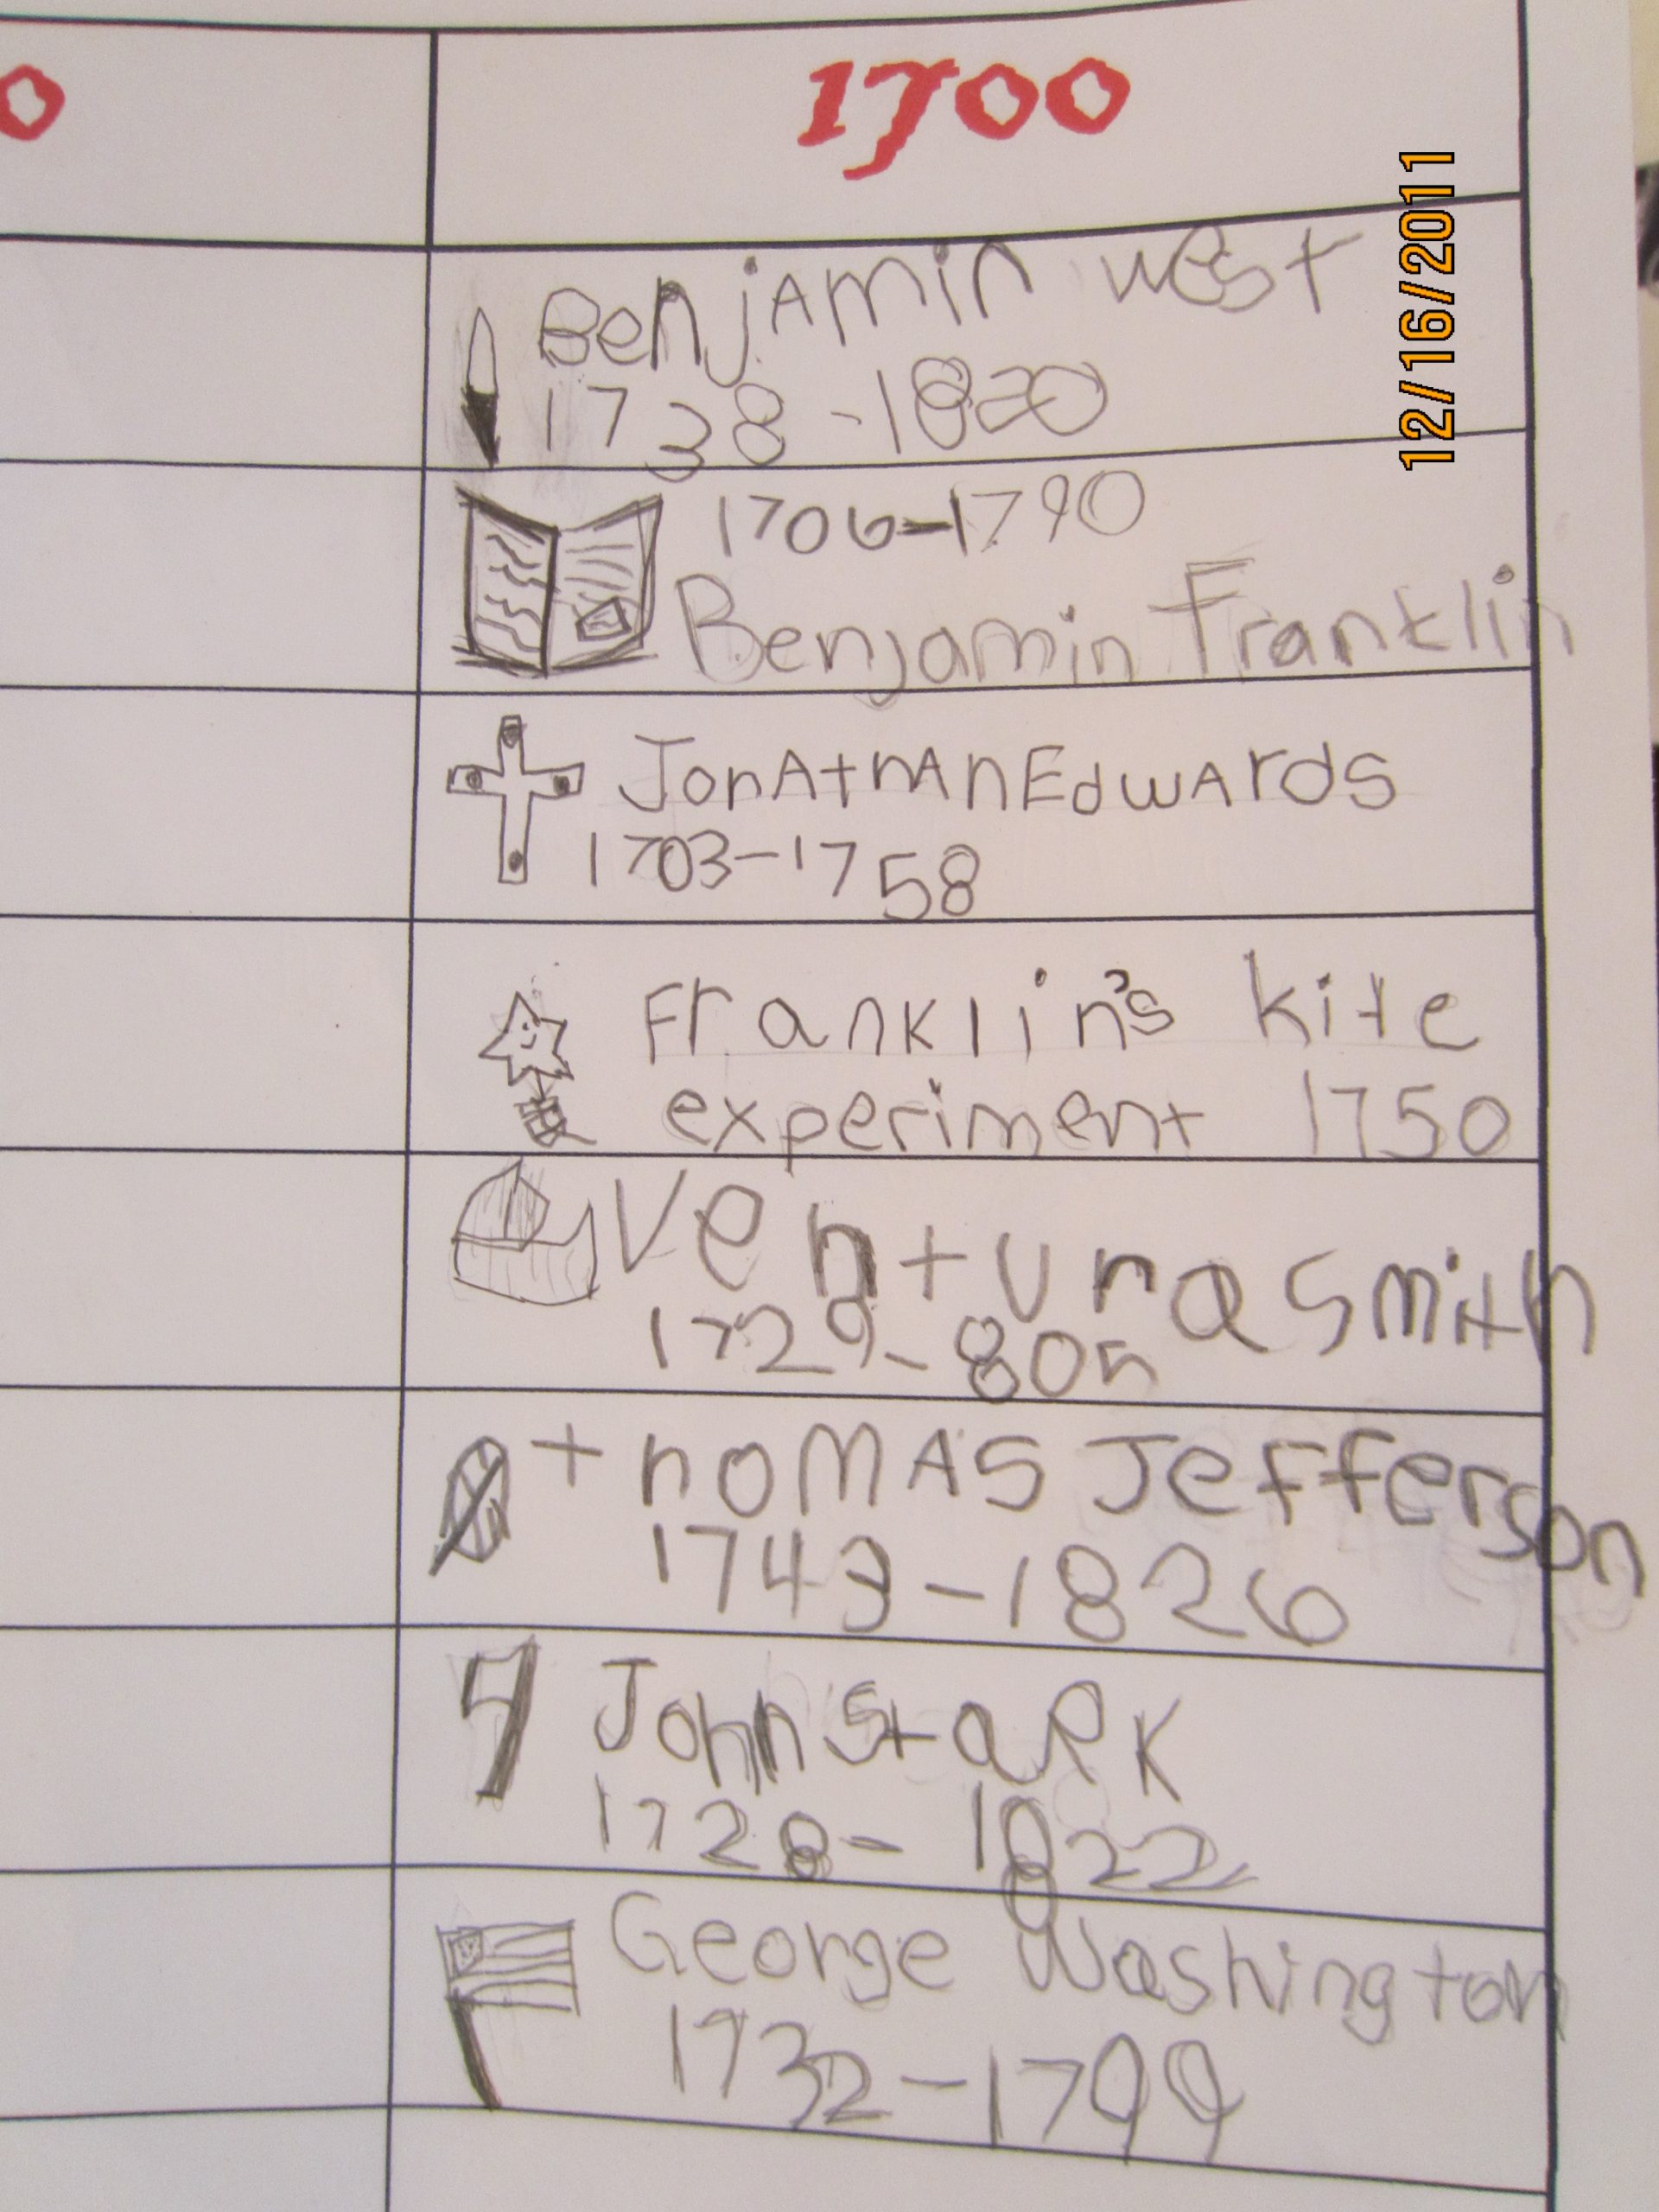 0
1700
12/16/2011
Benjamin west
1738-1820
1706-1790
Benjamin Franklin
JonAthAn Edwards
1703-1758
Franklin's kite
experiment 1750
Ventura smith
1729-805
thoMAS Jefferson
1743-1826
John StaRK
1728-1822
George Washington
1732-1799